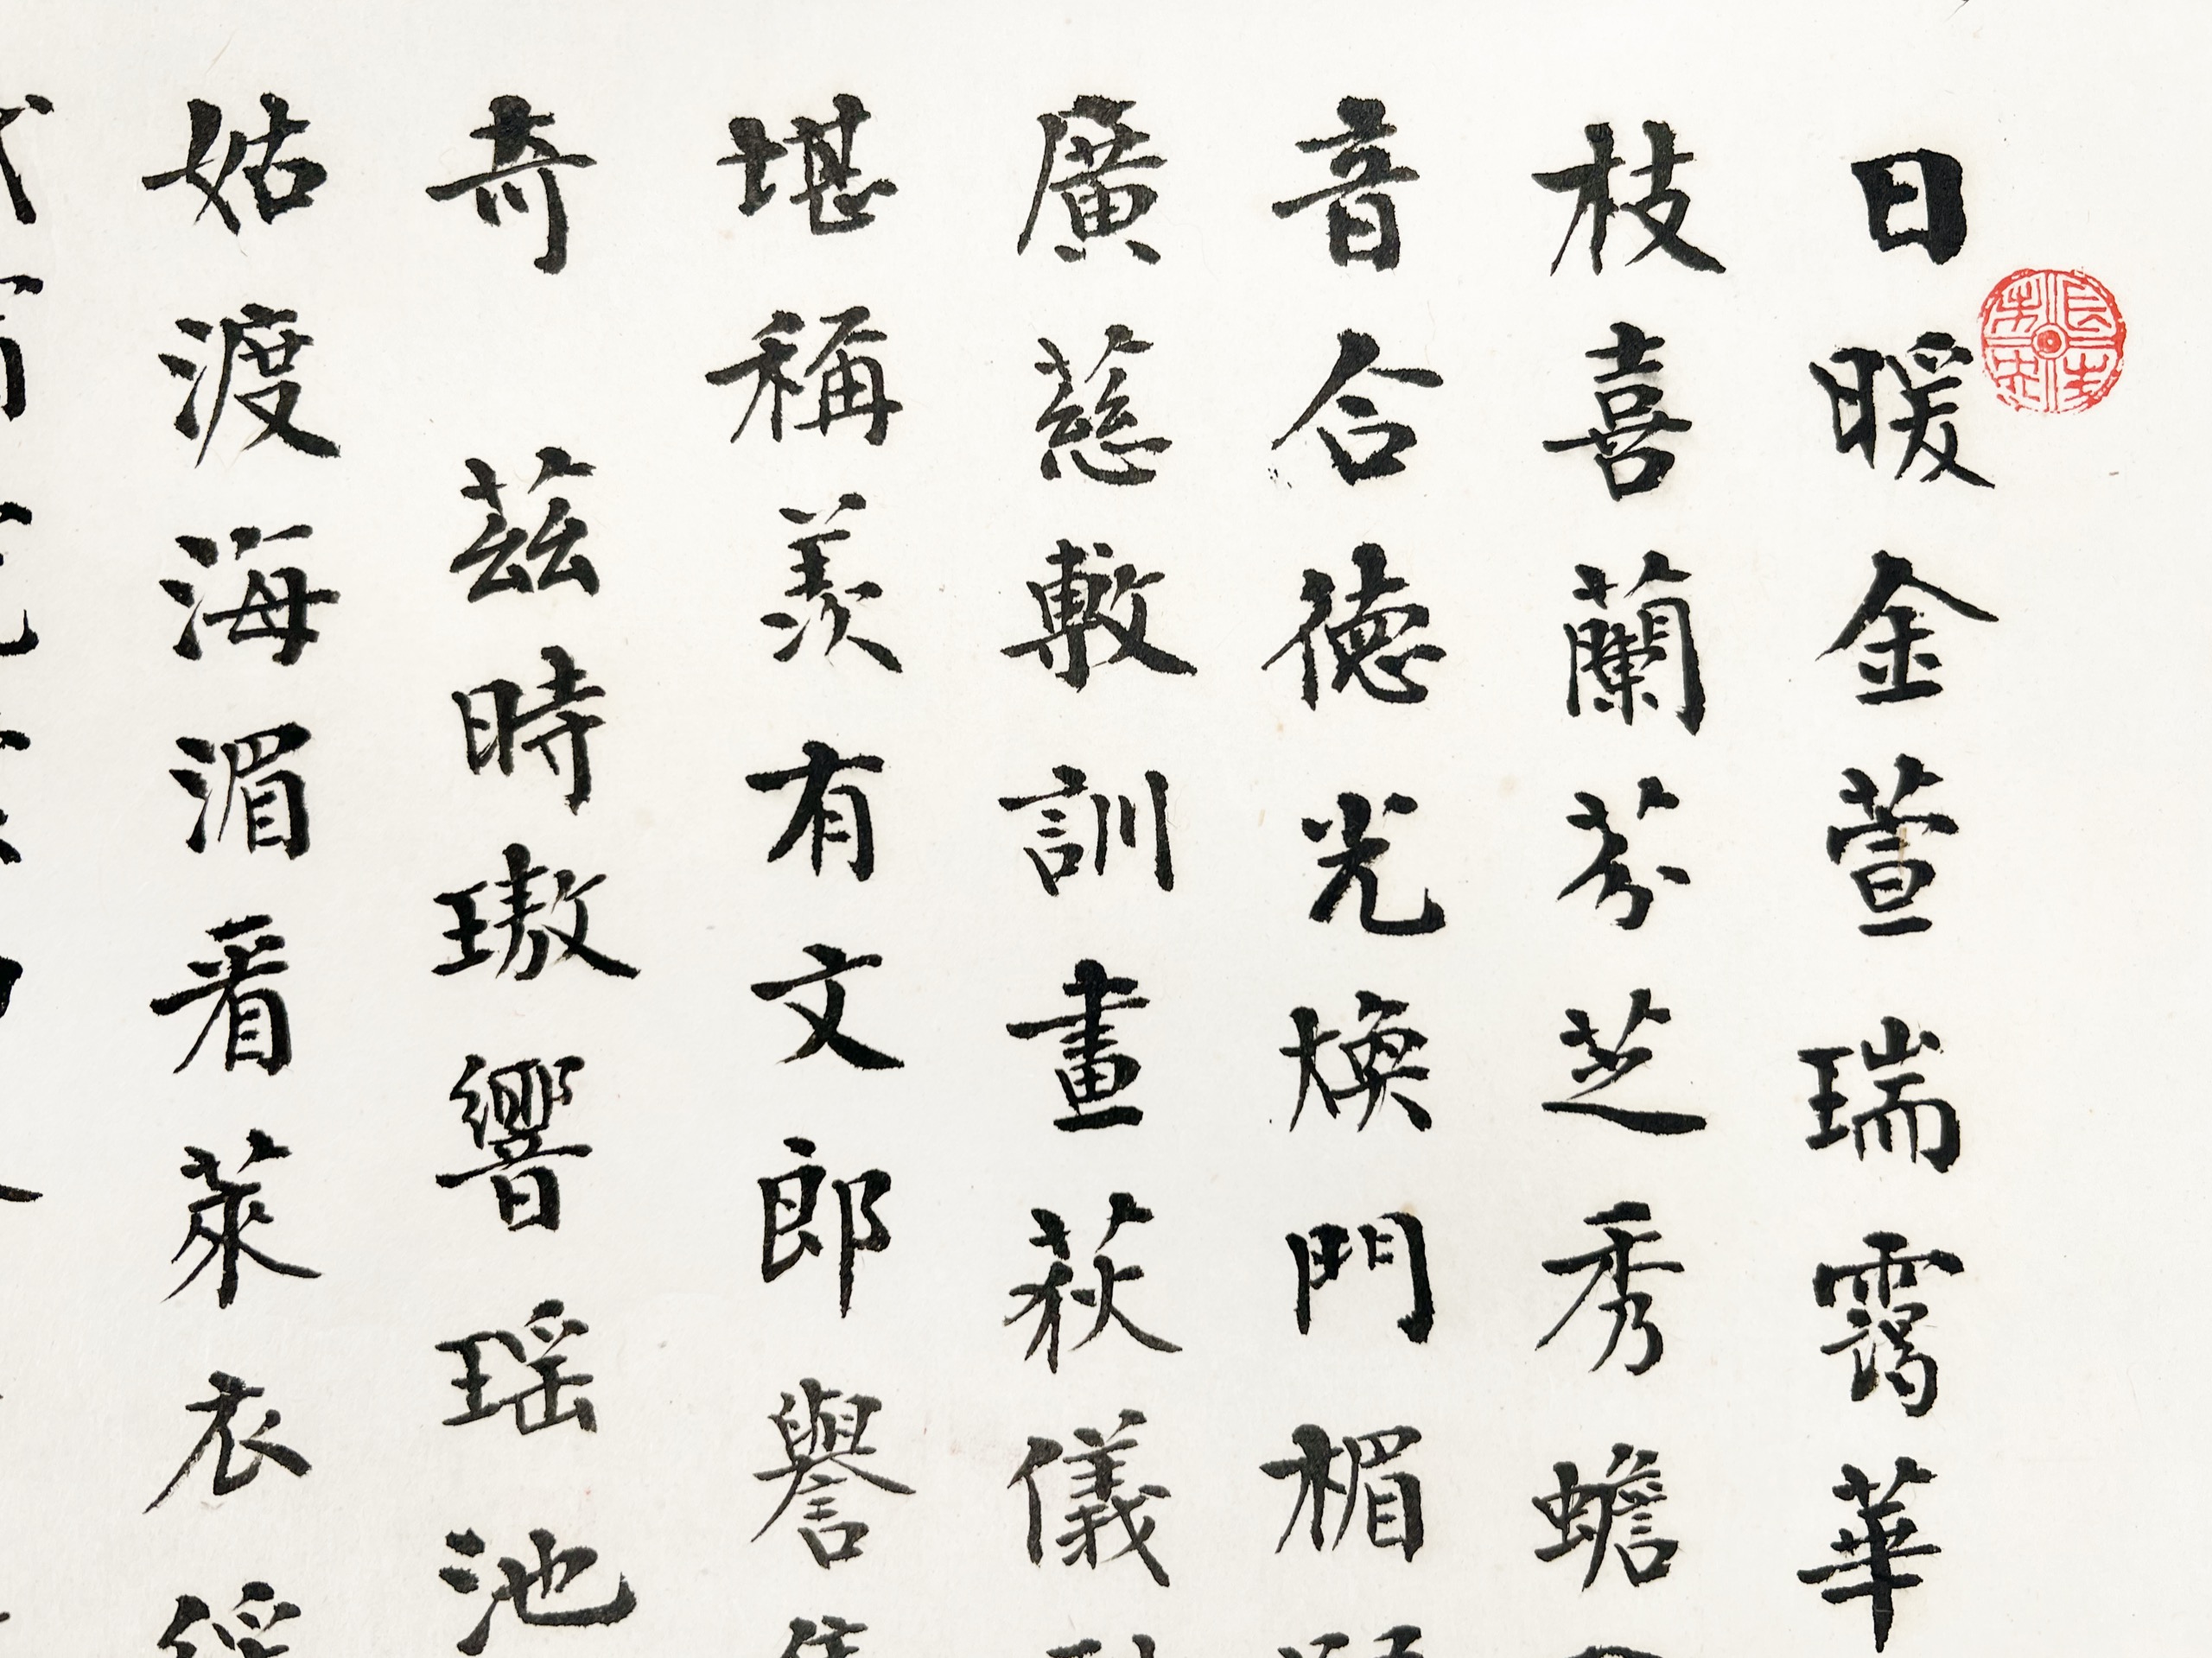 日暖金萱瑞靄華
枝喜蘭芬芝秀蟾
音合德光煥門楣
廣慈敷訓畫荻儀
堪稱羨有文郎譽
奇 茲時璈響瑶池
姑渡海湄看萊衣